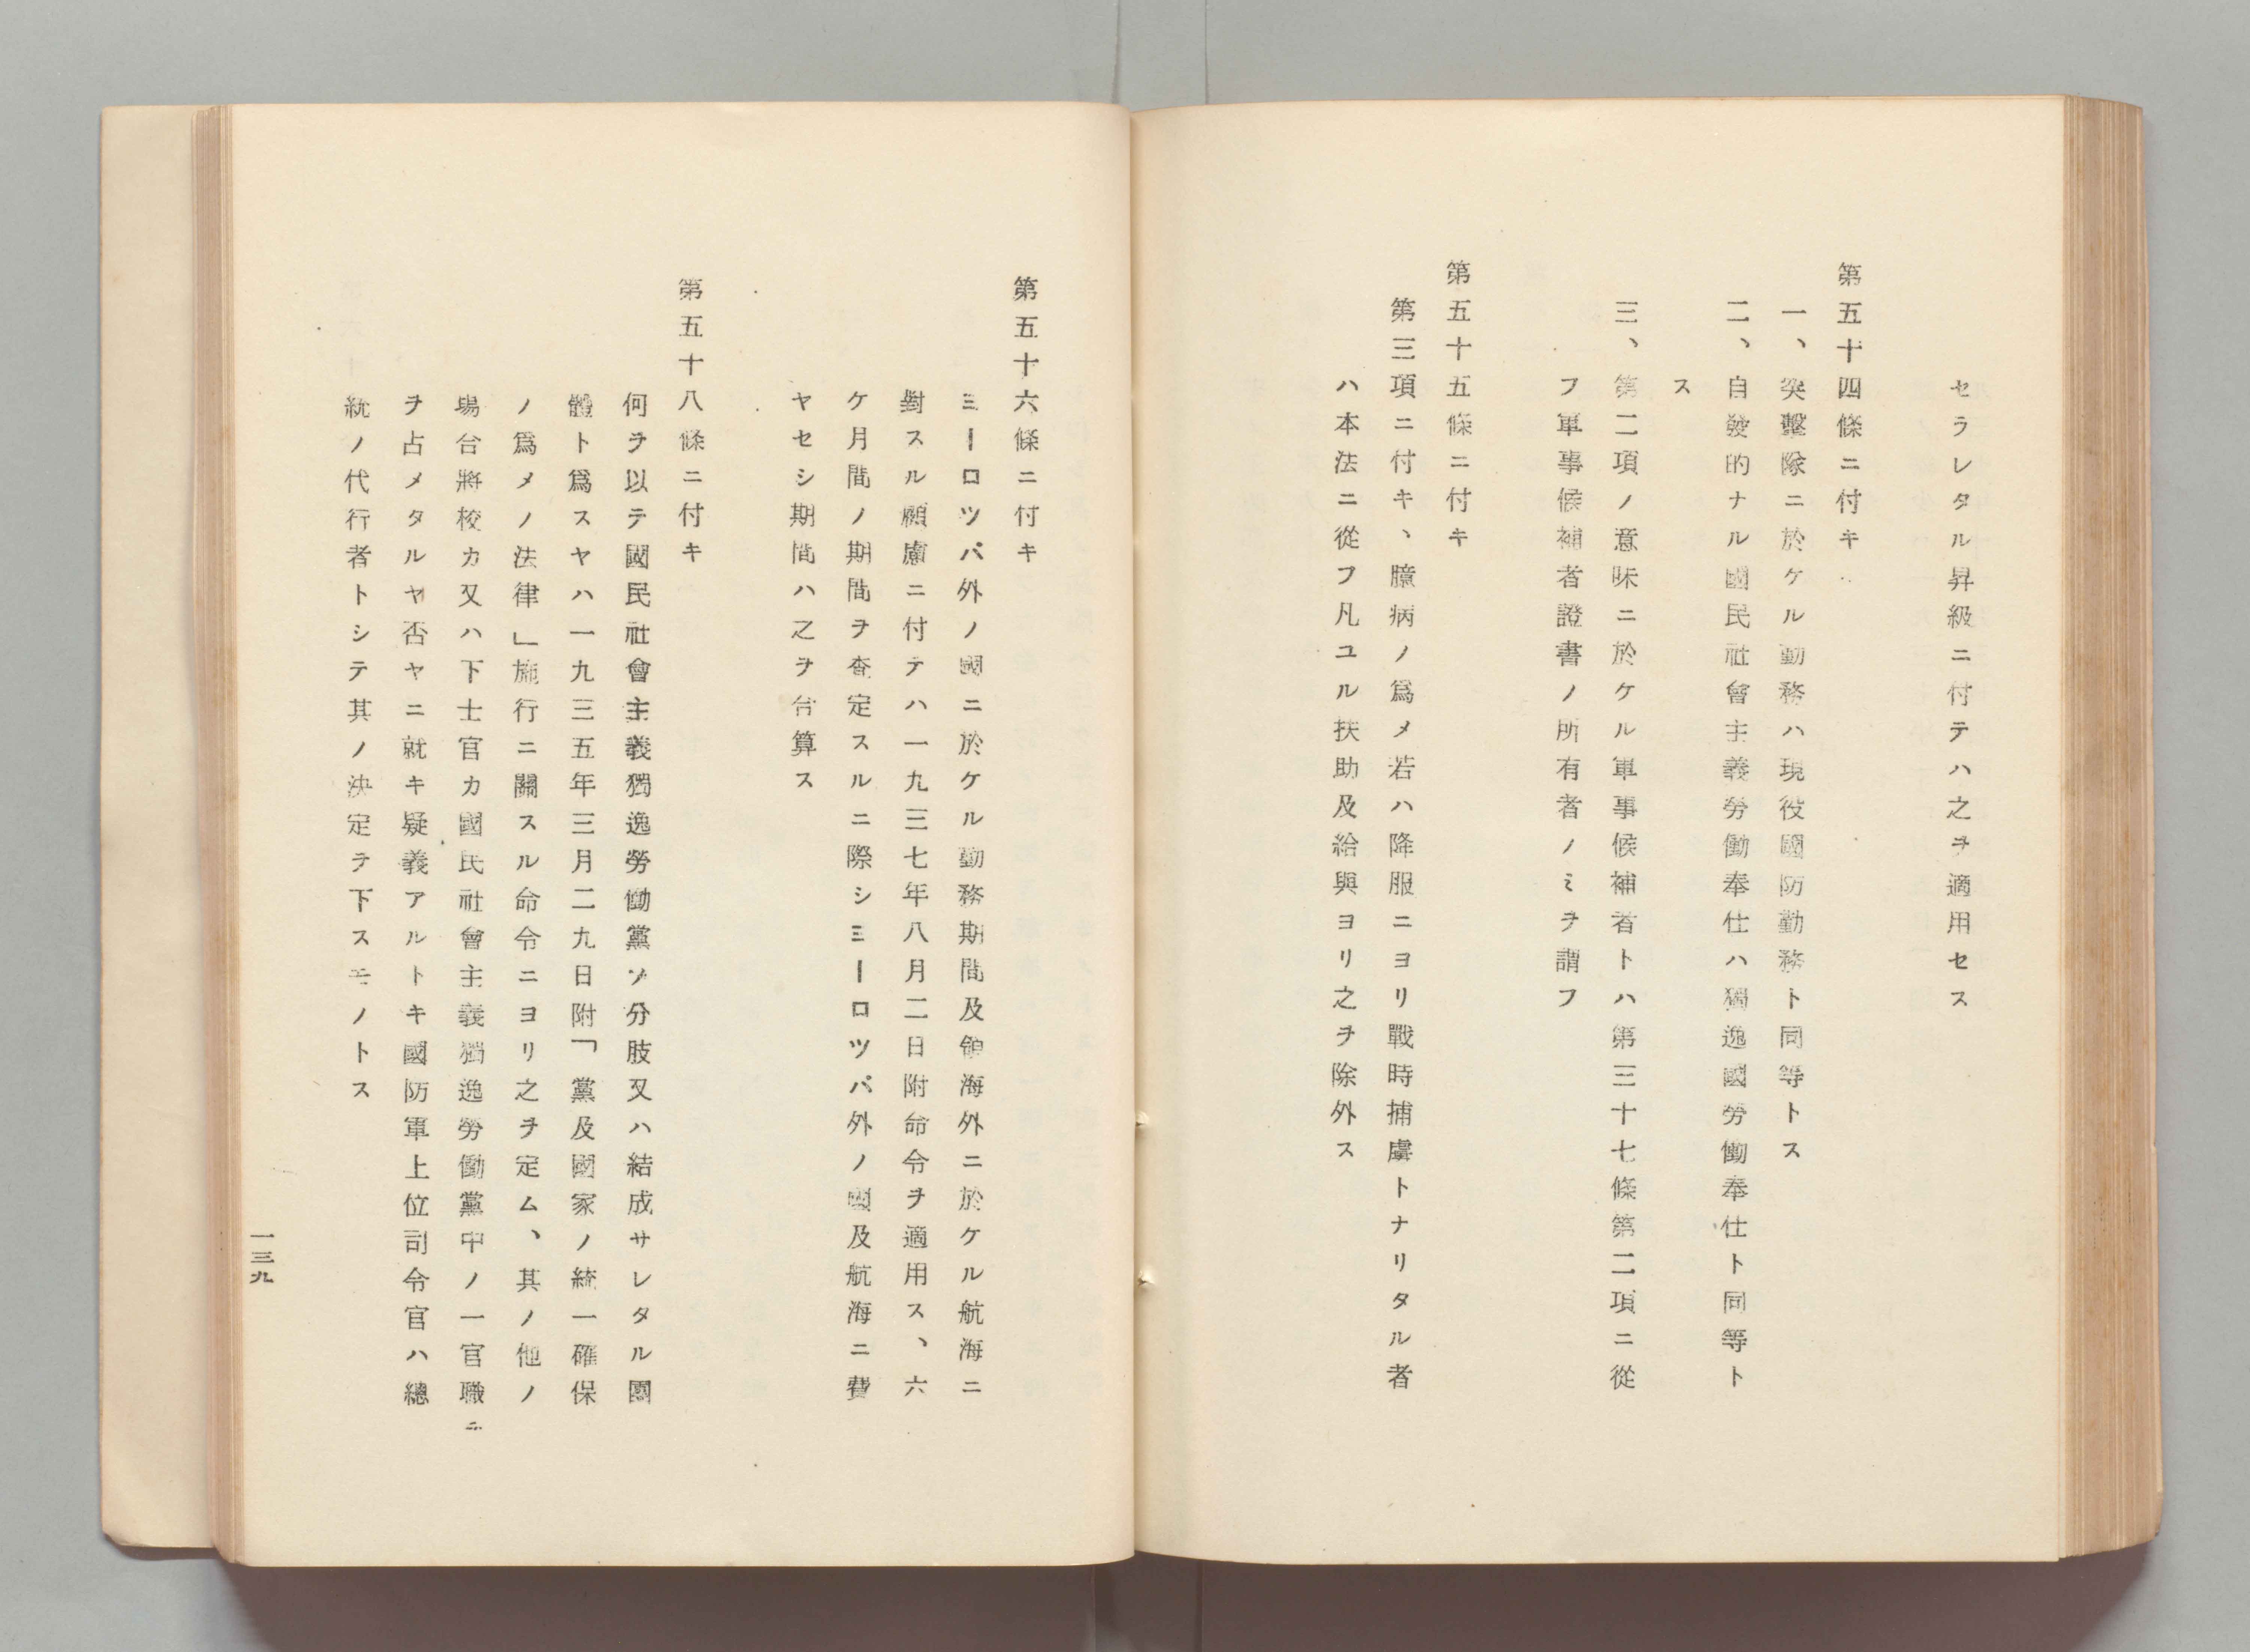 セラレタル昇級ニ付テハ之ヲ適用セス
第五十四條ニ付キ
一、突擊隊ニ於ケル勤務ハ現役國防勤務ト同等トス
二、自發的ナル國民社會主義勞働奉仕ハ獨逸國勞働奉仕ト同等ト
ス
三、第二項ノ意味ニ於ケル軍事候補者トハ第三十七條第二項ニ從
フ軍事候補者證書ノ所有者ノミヲ謂フ
第五十五條ニ付キ
第三項ニ付キ、臆病ノ爲メ若ハ降服ニヨリ戰時捕虜トナリタル者
ハ本法ニ從フ凡ユル扶助及給與ヨリ之ヲ除外ス
第五十六條ニ付キ
ヨーロツパ外ノ國ニ於ケル勤務期間及領海外ニ於ケル航海ニ
對スル顧慮ニ付テハ一九三七年八月二日附命令ヲ適用ス、六
ケ月間ノ期間ヲ査定スルニ際シヨーロツパ外ノ國及航海ニ費
ヤセシ期間ハ之ヲ合算ス
第五十八條ニ付キ
何ヲ以テ國民社會主義獨逸勞働黨ノ分肢又ハ結成サレタル團
體ト爲スヤハ一九三五年三月二九日附「黨及國家ノ統一確保
ノ爲メノ法律」施行ニ關スル命令ニヨリ之ヲ定ム、其ノ他ノ
場合將校カ又ハ下士官カ國民社會主義獨逸勞働黨中ノ一官職ニ
ヲ占メタルヤ否ヤニ就キ疑義アルトキ國防軍上位司令官ハ總
統ノ代行者トシテ其ノ決定ヲ下スモノトス
一三九